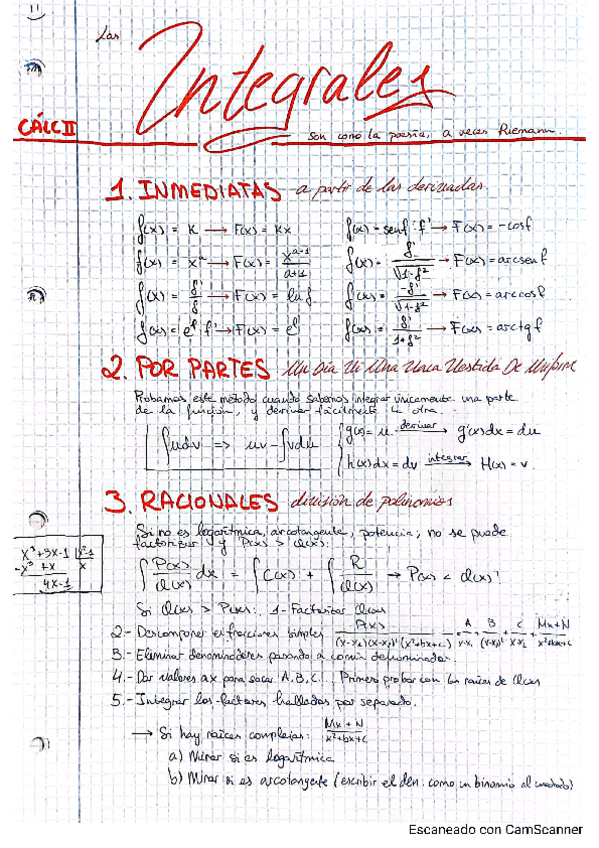 Las
Integrales
CÁLC II
son como la poesía, a veces Riemann.
1. INMEDIATAS a partir de las derivadas
f(x) = K → F(x) = Kx
f(x) = senf · f' → F(x) = -cosf
f(x) = x^a → F(x) = x^(a+1)/(a+1)
f(x) = f'/√(1-f²) → F(x) = arcsenf
f(x) = f'/f → F(x) = ln f
f(x) = -f'/√(1-f²) → F(x) = arccosf
f(x) = e^f · f' → F(x) = e^f
f(x) = f'/(1+f²) → F(x) = arctgf
2. POR PARTES Un Día Vi Una Vaca Vestida De Uniforme
Probamos este método cuando sabemos integrar únicamente una parte
de la función, y derivar fácilmente la otra.
∫udv => uv - ∫vdu
g(x) = u derivar → g'(x)dx = du
h(x)dx = dv integrar → H(x) = v
3. RACIONALES división de polinomios
Si no es logarítmica, arcotangente, potencia; no se puede
factorizar y P(x) > Q(x):
x³+3x-1 | x²-1
-x³ +x x
4x-1
∫ P(x)/Q(x) dx = ∫ C(x) + ∫ R/Q(x) → P(x) < Q(x)!
Si Q(x) > P(x): 1-Factorizar Q(x)
2.- Descomponer en fracciones simples
3.- Eliminar denominadores pasando a común denominador.
4.- Dar valores a x para sacar A, B, C... Primero probar con las raíces de Q(x)
5.- Integrar los factores hallados por separado.
→ Si hay raíces complejas: Mx + N/x²+bx+c
a) Mirar si es logarítmica
b) Mirar si es arcotangente (escribir el den. como un binomio al cuadrado)
Escaneado con CamScanner